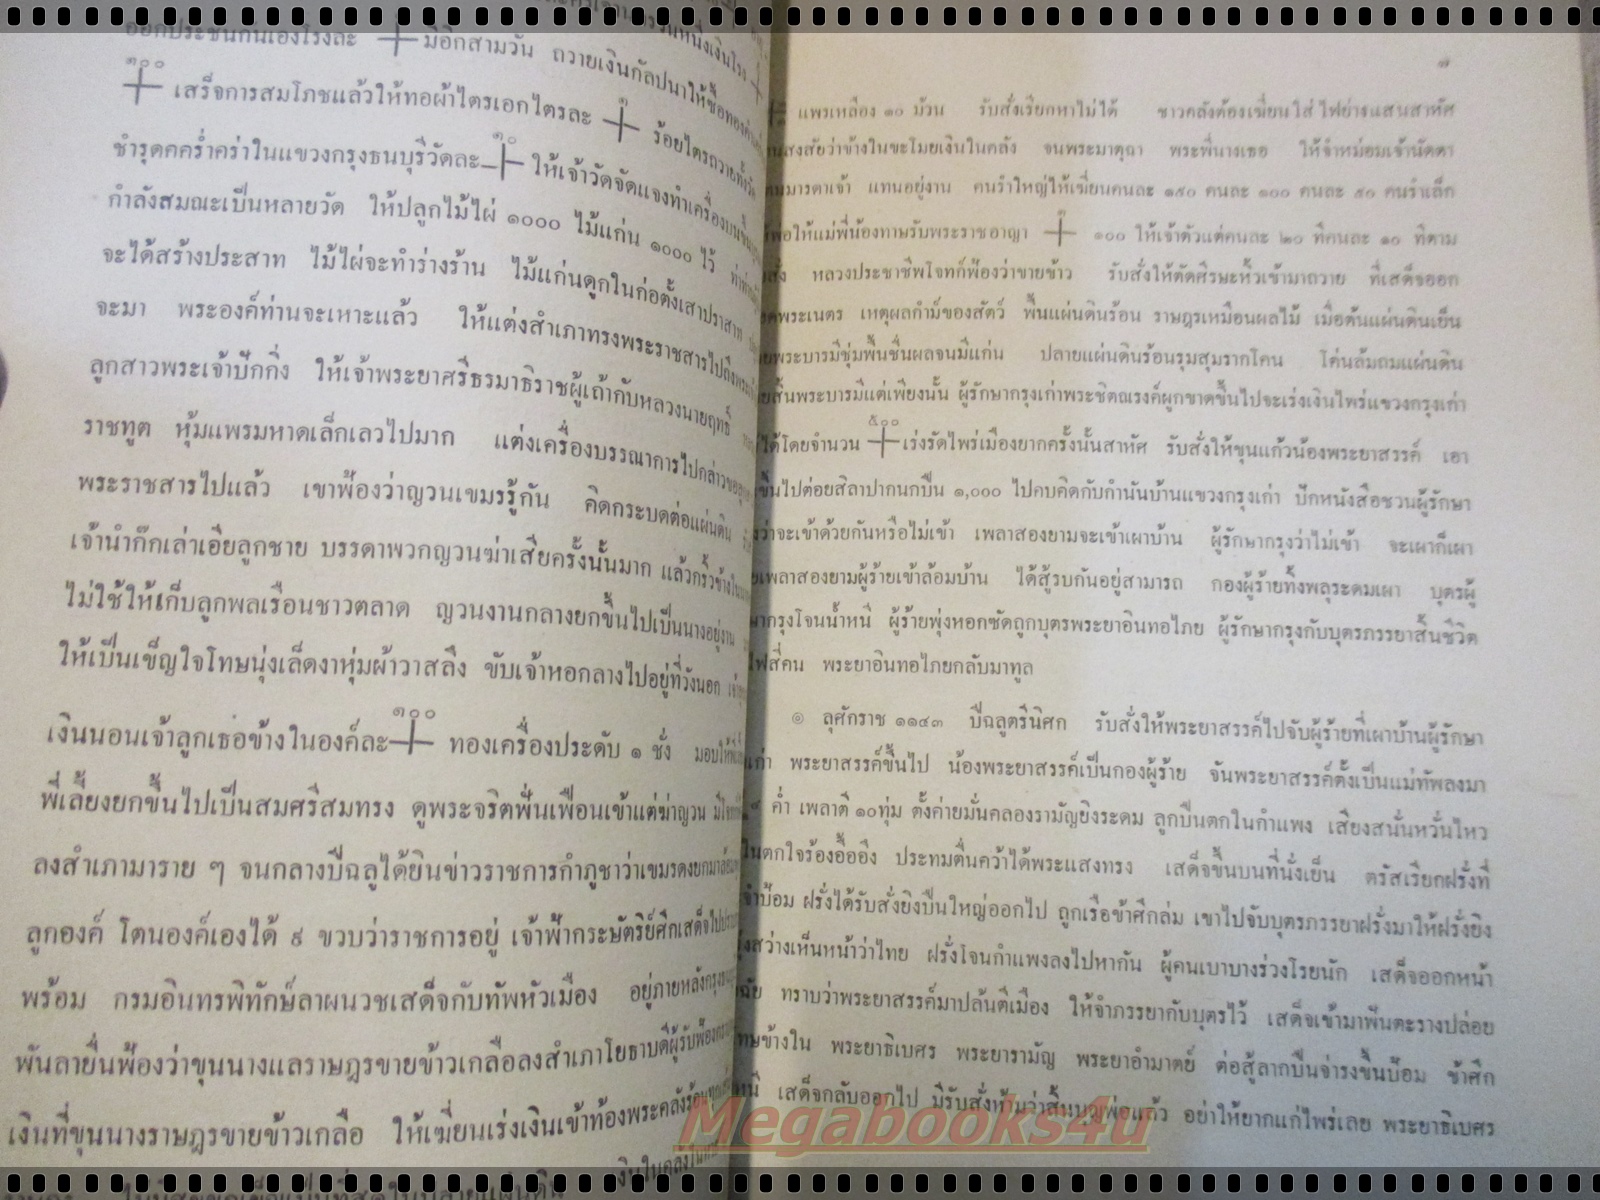 ออกประชันกันเองโรงละ มีอีกสามวัน ถวายเงินกัลปนาให้ซื้อทองคำ
๓๐๐ เสร็จการสมโภชแล้วให้ทอผ้าไตรเอกไตรละ ๑ ร้อยไตรถวายทั้งวัด
ชำรุดคคร่ำคร่าในแขวงกรุงธนบุรีวัดละ ๑๐ ให้เจ้าวัดจัดแจงทำเครื่องบน
กำลังสมณะเป็นหลายวัด ให้ปลูกไม้ไผ่ ๑๐๐๐ ไม้แก่น ๑๐๐๐ ไว้
จะได้สร้างประสาท ไม้ไผ่จะทำร่างร้าน ไม้แก่นดูกในก่อตั้งเสาปราสาท
จะมา พระองค์ท่านจะเหาะแล้ว ให้แต่งสำเภาทรงพระราชสารไปถึง
ลูกสาวพระเจ้าปักกิ่ง ให้เจ้าพระยาศรีธรมาธิราชผู้เถ้ากับหลวงนายฤทธิ์
ราชทูต หุ้มแพรมหาดเล็กเลวไปมาก แต่งเครื่องบรรณาการไปกล่าวขอ
พระราชสารไปแล้ว เขาฟ้องว่าญวนเขมรรู้กัน คิดกระบดต่อแผ่นดิน
เจ้านำก๊กเล่าเอียลูกชาย บรรดาพวกญวนฆ่าเสียครั้งนั้นมาก แล้วกริ้วข้างใน
ไม่ใช้ให้เก็บลูกพลเรือนชาวตลาด ญวนงานกลางยกขึ้นไปเป็นนางอยู่งาน
ให้เป็นเข็ญใจโทษนุ่งเล็ดงาหุ่มผ้าวาสลึง ขับเจ้าหอกลางไปอยู่ที่วังนอก
เงินนอนเจ้าลูกเธอข้างในองค์ละ ๓๐๐ ทองเครื่องประดับ ๑ ชั่ง มอบให้
พี่เลี้ยงยกขึ้นไปเป็นสมศรีสมทรง ดูพระจริตฟั่นเฟือนเข้าแต่ฆ่าญวน
ลงสำเภามาราย ๆ จนกลางปีฉลูได้ยินข่าวราชการกำภูชาว่าเขมรดงยกมา
ลูกองค์ โตนองค์เองได้ ๙ ขวบว่าราชการอยู่ เจ้าฟ้ากระษัตริย์ศึกเสด็จไป
พร้อม กรมอินทรพิทักษ์ลาผนวชเสด็จกับทัพหัวเมือง อยู่ภายหลังกรุง
พันลายื่นฟ้องว่าขุนนางแลราษฎรขายข้าวเกลือลงสำเภาโยธาบดีผู้รับฟ้อง
เงินที่ขุนนางราษฎรขายข้าวเกลือ ให้เฆี่ยนเร่งเงินเข้าท้องพระคลังร้อน
๗
แพรเหลือง ๑๐ ม้วน รับสั่งเรียกหาไม่ได้ ชาวคลังต้องเฆี่ยนใส่ไฟย่างแสนสาหัศ
สงสัยว่าข้างในขะโมยเงินในคลัง จนพระมาตุฉา พระพี่นางเธอ ให้จำหม่อมเจ้านัดดา
มารดาเจ้า แทนอยู่งาน คนรำใหญ่ให้เฆี่ยนคนละ ๑๕๐ คนละ ๑๐๐ คนละ ๕๐ คนรำเล็ก
พ่อให้แม่พี่น้องทาษรับพระราชอาญา ๑๐๐ ให้เจ้าตัวแต่คนละ ๒๐ ที่คนละ ๑๐ ที่ตาม
สั่ง หลวงประชาชีพโจทก์ฟ้องว่าขายข้าว รับสั่งให้ตัดศีรษะหิ้วเข้ามาถวาย ที่เสด็จออก
พระเนตร เหตุผลกำม์ของสัตว์ พื้นแผ่นดินร้อน ราษฎรเหมือนผลไม้ เมื่อต้นแผ่นดินเย็น
พระบารมีชุ่มพื้นชื่นผลจนมีแก่น ปลายแผ่นดินร้อนรุมสุมรากโคน โค่นล้มถมแผ่นดิน
สิ้นพระบารมีแต่เพียงนั้น ผู้รักษากรุงเก่าพระชิตณรงค์ผูกขาดขึ้นไปจะเร่งเงินไพร่แขวงกรุงเก่า
ได้โดยจำนวน ๕๐๐ เร่งรัดไพร่เมืองยากครั้งนั้นสาหัศ รับสั่งให้ขุนแก้วน้องพระยาสรรค์ เอา
ขึ้นไปต่อยสิลาปากนกปืน ๑,๐๐๐ ไปคบคิดกับกำนันบ้านแขวงกรุงเก่า ปักหนังสือชวนผู้รักษา
ว่าจะเข้าด้วยกันหรือไม่เข้า เพลาสองยามจะเข้าเผาบ้าน ผู้รักษากรุงว่าไม่เข้า จะเผาก็เผา
เพลาสองยามผู้ร้ายเข้าล้อมบ้าน ได้สู้รบกันอยู่สามารถ กองผู้ร้ายทิ้งพลุระดมเผา บุตรผู้
กรุงโจนน้ำหนี ผู้ร้ายพุ่งหอกซัดถูกบุตรพระยาอินทอไภย ผู้รักษากรุงกับบุตรภรรยาสิ้นชีวิต
ไฟสี่คน พระยาอินทอไภยกลับมาทูล
๏ ลุศักราช ๑๑๔๓ ปีฉลูตรีนิศก รับสั่งให้พระยาสรรค์ไปจับผู้ร้ายที่เผาบ้านผู้รักษา
เก่า พระยาสรรค์ขึ้นไป น้องพระยาสรรค์เป็นกองผู้ร้าย จันพระยาสรรค์ตั้งเป็นแม่ทัพลงมา
๙ ค่ำ เพลาตี ๑๐ทุ่ม ตั้งค่ายมั่นคลองรามัญยิงระดม ลูกปืนตกในกำแพง เสียงสนั่นหวั่นไหว
ในตกใจร้องอื้ออึง ประทมตื่นคว้าได้พระแสงทรง เสด็จขึ้นบนที่นั่งเย็น ตรัสเรียกฝรั่งที่
จำป้อม ฝรั่งได้รับสั่งยิงปืนใหญ่ออกไป ถูกเรือข้าศึกล่ม เขาไปจับบุตรภรรยาฝรั่งมาให้ฝรั่งยิง
สว่างเห็นหน้าว่าไทย ฝรั่งโจนกำแพงลงไปหากัน ผู้คนเบาบางร่วงโรยนัก เสด็จออกหน้า
ทราบว่าพระยาสรรค์มาปล้นตีเมือง ให้จำภรรยากับบุตรไว้ เสด็จเข้ามาฟันตะรางปล่อย
ข้างใน พระยาธิเบศร พระยารามัญ พระยาอำมาตย์ ต่อสู้ลากปืนจ่ารงขึ้นป้อม ข้าศึก
หนี เสด็จกลับออกไป มีรับสั่งห้ามว่าสิ้นบุญพ่อแล้ว อย่าให้ยากแก่ไพร่เลย พระยาธิเบศร
Megabooks4u